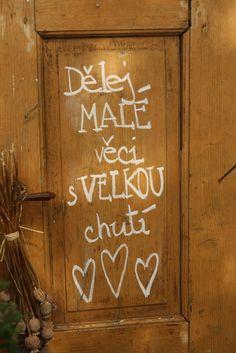 Dělej
MALÉ
věci
s VELKOU
chutí